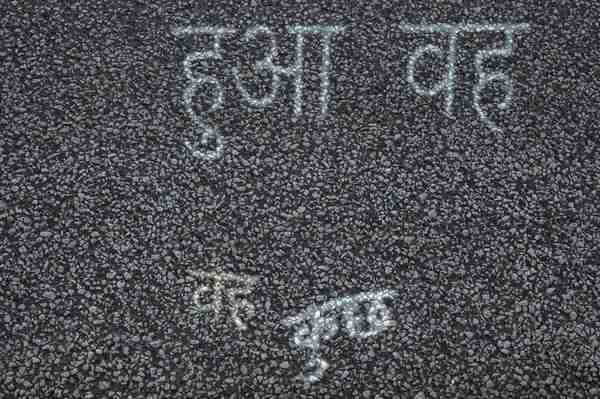 हुआ वह
वह कुछ